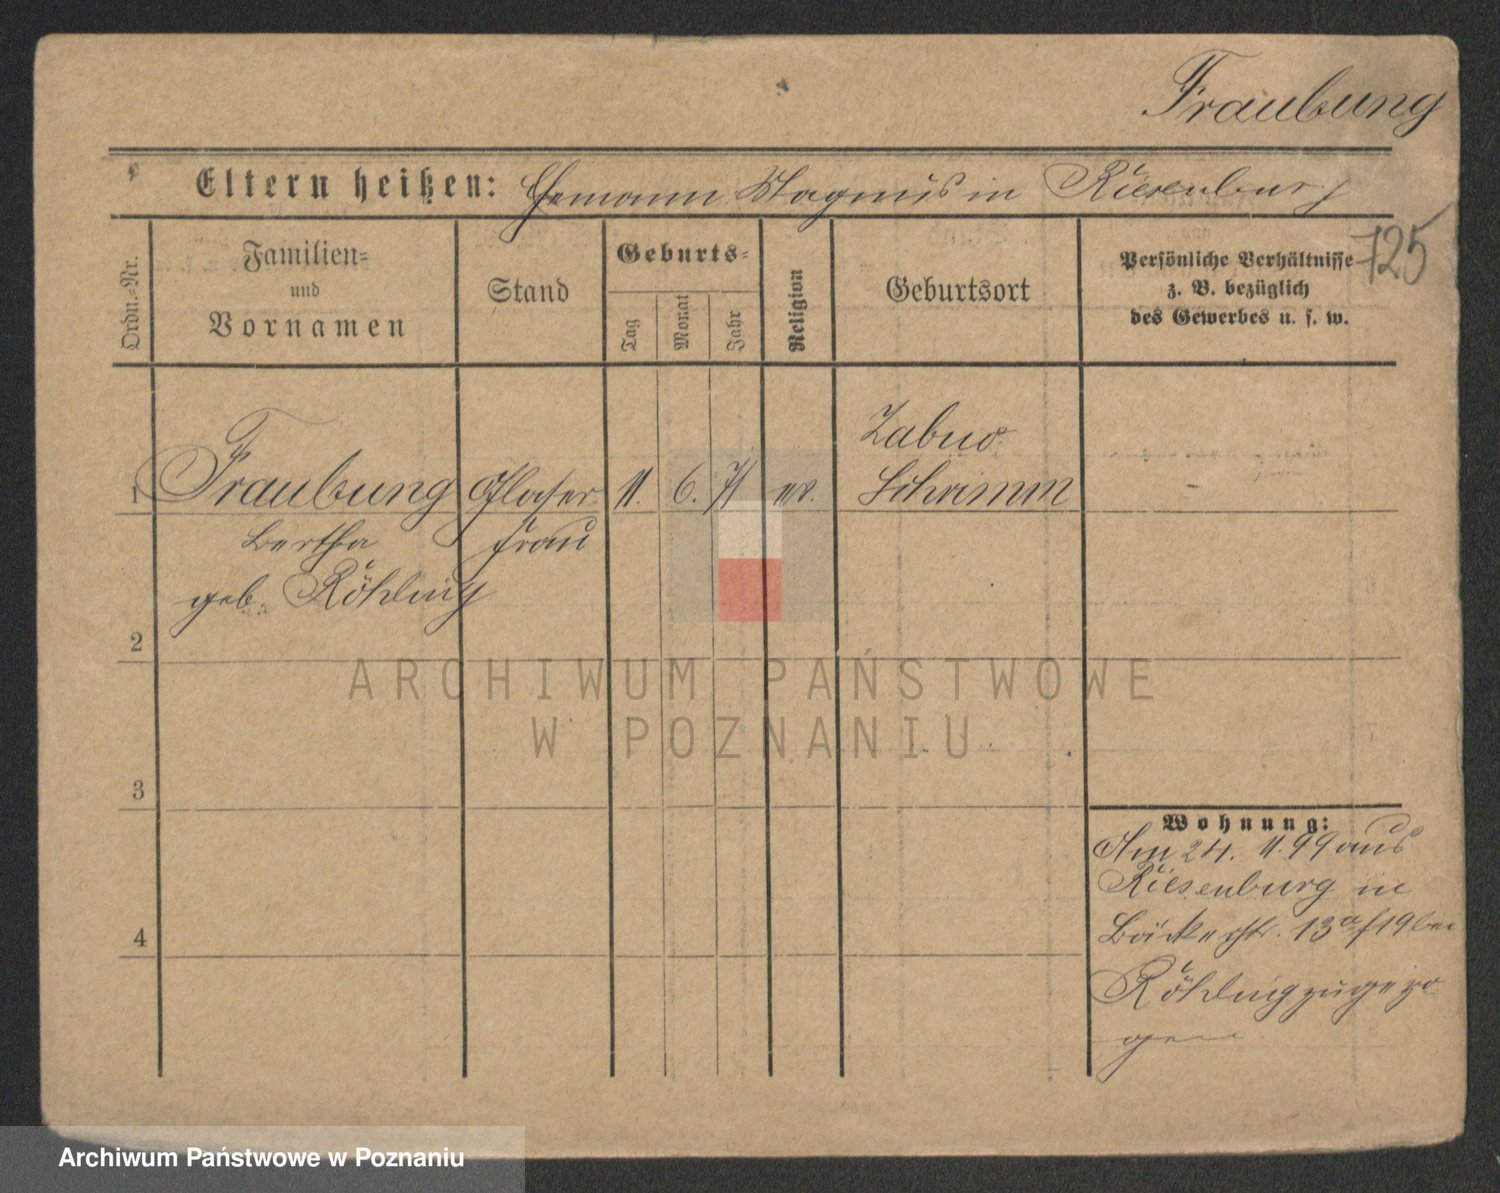 Fraubung
Eltern heißen: Ehemann Magnus in Riesenburg
725
Ordn.-Nr.
Familien-
und
Vornamen
Stand
Geburts-
Tag
Monat
Jahr
Religion
Geburtsort
Persönliche Verhältnisse
z. B. bezüglich
des Gewerbes u. s. w.
Zabno
1 Fraubung Glaser 11. 6. 71 ev. Schrimm
Bertha frau
geb. Röhling
2
3
4
Wohnung:
Am 24. 11. 99 aus
Riesenburg in
Bäckerstr. 13a/19 bei
Röhling zugezo
gen
ARCHIWUM PAŃSTWOWE
W POZNANIU
Archiwum Państwowe w Poznaniu